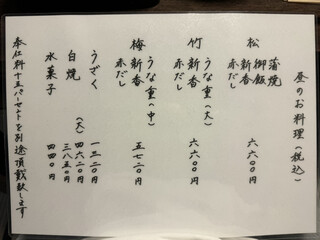 昼のお料理(税込)
松 蒲焼
御飯
新香
赤だし 六六〇〇円
竹 うな重(大)
新香
赤だし 六六〇〇円
梅 うな重(中)
新香
赤だし 五七二〇円
うざく 一三二〇円
白焼 (大) 四六二〇円
三八五〇円
水菓子 四四〇円
奉仕料十五パーセントを別途頂戴致します